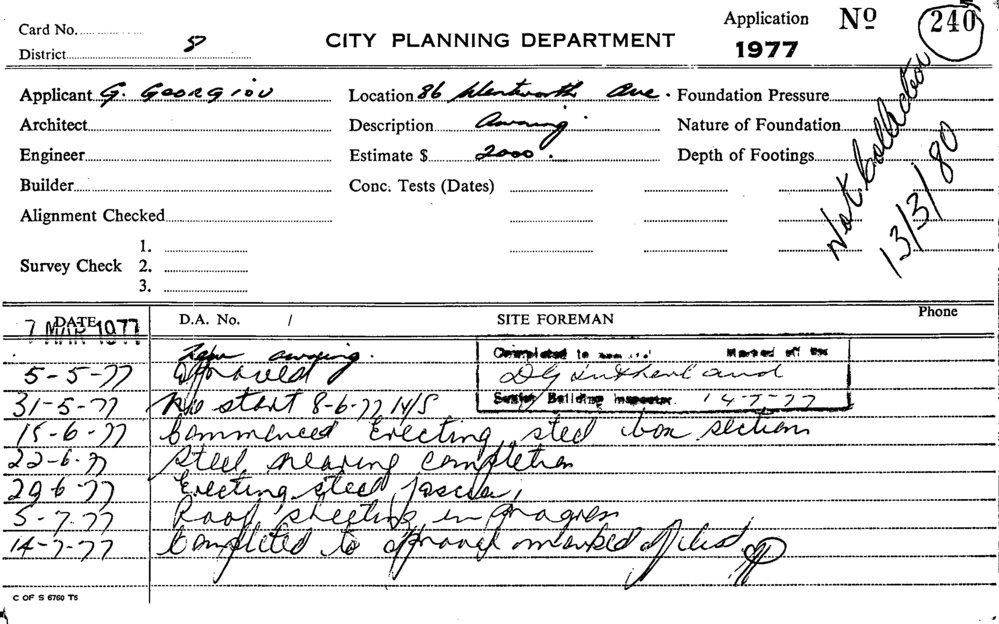 Card No.
District 8
CITY PLANNING DEPARTMENT
Application No 240
1977
Applicant G. GEORGIOU
Location 86 Wentworth Ave.
Foundation Pressure
Architect
Description Awning
Nature of Foundation
Engineer
Estimate $ 2000.
Depth of Footings
Builder
Conc. Tests (Dates)
Not Collection
13/3/80
Alignment Checked
Survey Check
1.
2.
3.
DATE
7 MAR 1977
D.A. No. /
SITE FOREMAN
Phone
New awning.
Completed to Marked off
5-5-77 Approved
D G Sutherland
Senior Building Inspector. 14-7-77
31-5-77 No start 8-6-77 N/S
15-6-77 Commenced Erecting steel box sections
22-6-77 Steel nearing completion
29-6-77 Erecting steel fascia,
5-7-77 Roof sheeting in progress
14-7-77 Completed to approval marked off list
C OF S 6760 T5